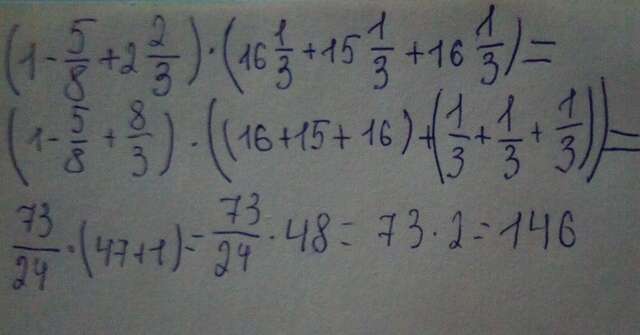 (1 - 5/8 + 2 2/3) · (16 1/3 + 15 1/3 + 16 1/3) =
(1 - 5/8 + 8/3) · ((16 + 15 + 16) + (1/3 + 1/3 + 1/3)) =
73/24 · (47 + 1) = 73/24 · 48 = 73 · 2 = 146